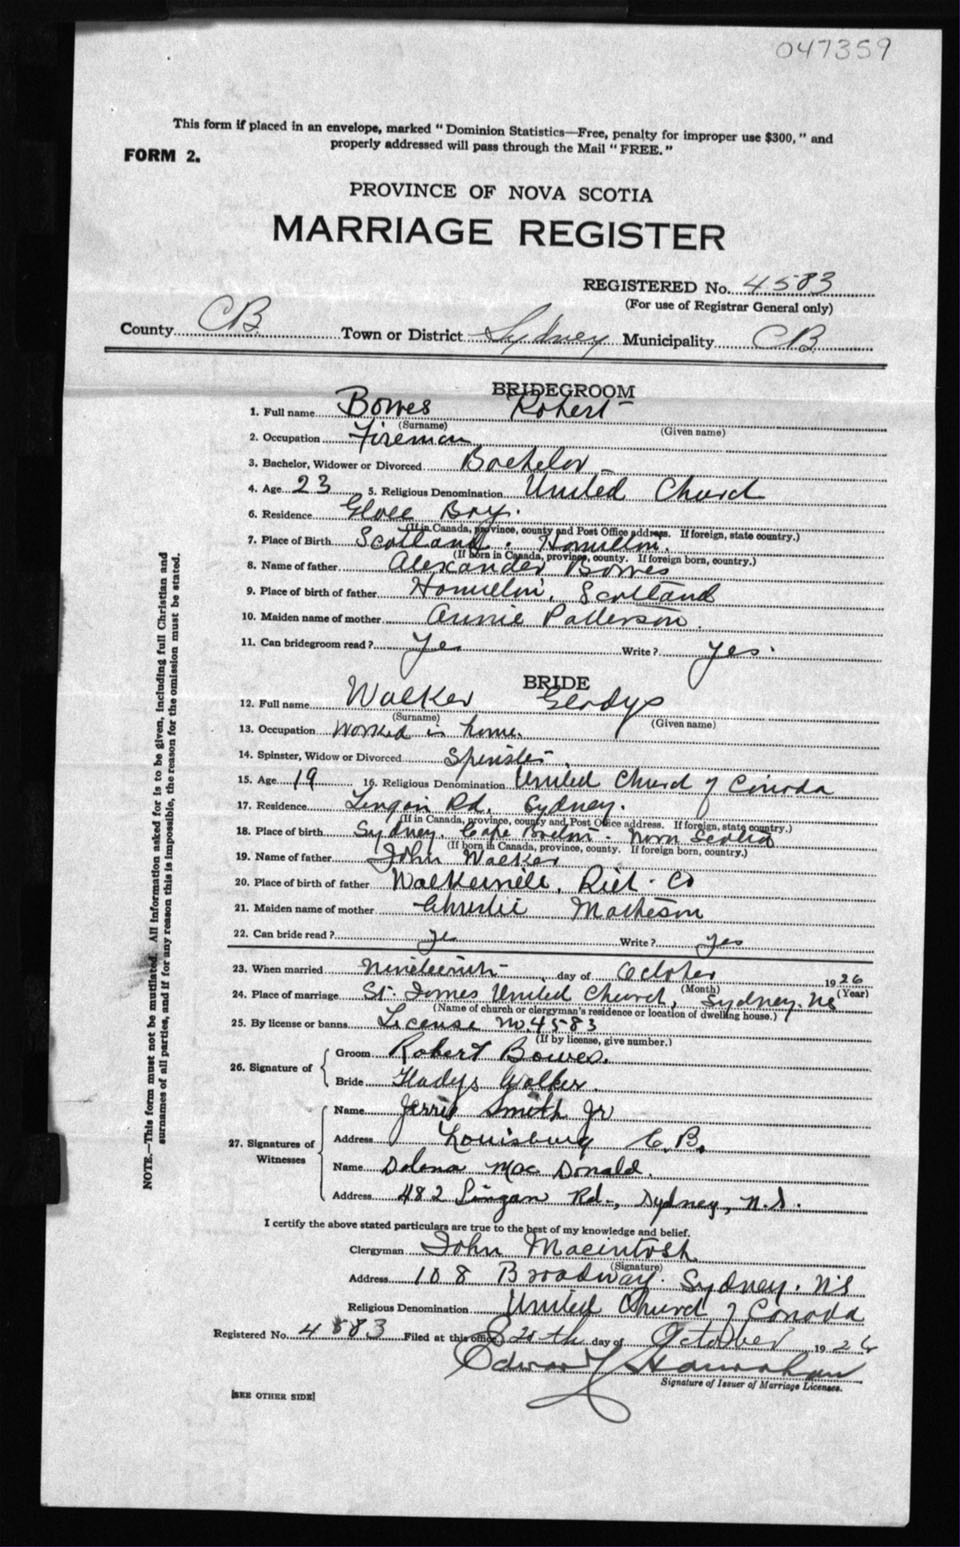 047359
This form if placed in an envelope, marked "Dominion Statistics—Free, penalty for improper use $300," and
properly addressed will pass through the Mail "FREE."
FORM 2.
PROVINCE OF NOVA SCOTIA
MARRIAGE REGISTER
REGISTERED No. 4583
(For use of Registrar General only)
County CB Town or District Sydney Municipality CB
BRIDEGROOM
1. Full name Bowes Robert
(Surname) (Given name)
2. Occupation Fireman
3. Bachelor, Widower or Divorced Bachelor
4. Age 23 5. Religious Denomination United Church
6. Residence Glace Bay.
(If in Canada, province, county and Post Office address. If foreign, state country.)
7. Place of Birth Scotland.
(If born in Canada, province, county. If foreign born, country.)
8. Name of father Alexander Bowes
9. Place of birth of father Scotland
10. Maiden name of mother Annie Patterson.
11. Can bridegroom read? Yes Write? Yes.
BRIDE
12. Full name Walker Gladys
(Surname) (Given name)
13. Occupation Worked in home.
14. Spinster, Widow or Divorced Spinster.
15. Age 19 16. Religious Denomination United Church of Canada
17. Residence Lingan Rd, Sydney.
(If in Canada, province, county and Post Office address. If foreign, state country.)
18. Place of birth Sydney. Cape Breton. Nova Scotia
(If born in Canada, province, county. If foreign born, country.)
19. Name of father John Walker
20. Place of birth of father Rich. Co
21. Maiden name of mother Christie Matheson
22. Can bride read? Yes Write? Yes
23. When married Nineteenth day of October 1926
(Month) (Year)
24. Place of marriage St. James United Church, Sydney. NS
(Name of church or clergyman's residence or location of dwelling house.)
25. By license or banns License No. 4583
(If by license, give number.)
26. Signature of
Groom Robert Bowes.
Bride Gladys Walker.
27. Signatures of Witnesses
Name Smith Jr
Address Louisburg C.B.
Name Dolena MacDonald.
Address 482 Lingan Rd., Sydney, N.S.
I certify the above stated particulars are true to the best of my knowledge and belief.
Clergyman John Macintosh
(Signature)
Address 108 Broadway. Sydney. NS
Religious Denomination United Church of Canada
Registered No. 4583 Filed at this office 20th day of October 1926
Edward Hanrahan
Signature of Issuer of Marriage Licenses.
[SEE OTHER SIDE]
NOTE.—This form must not be mutilated. All information asked for is to be given, including full Christian and
surnames of all parties, and if for any reason this is impossible, the reason for the omission must be stated.